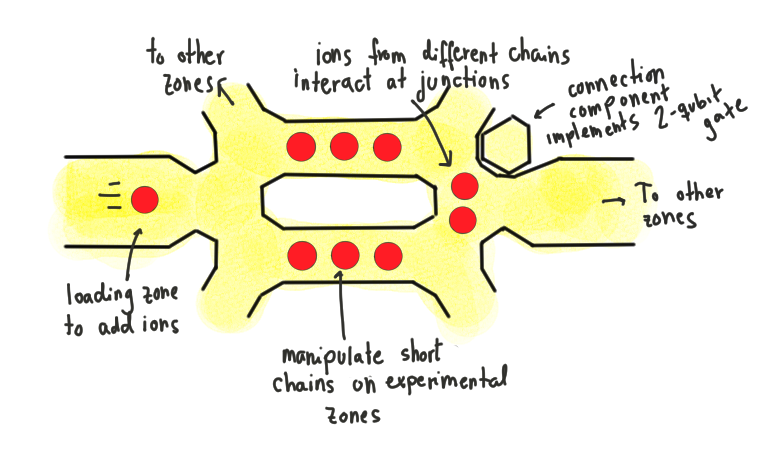 to other
zones
ions from different chains
interact at junctions
connection
component
implements 2-qubit
gate
To other
zones
loading zone
to add ions
manipulate short
chains on experimental
zones